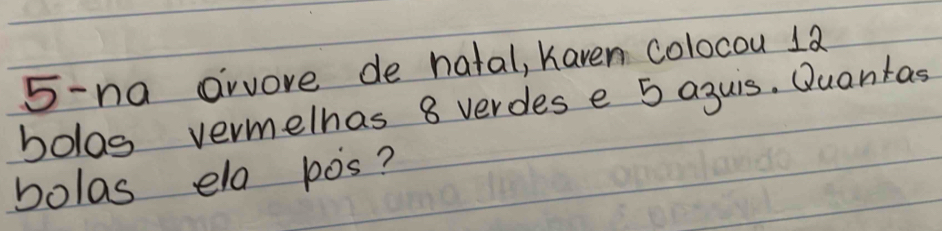 5-na árvore de natal, Karen colocou 12
bolas vermelhas 8 verdes e 5 azuis. Quantas
bolas ela pôs?